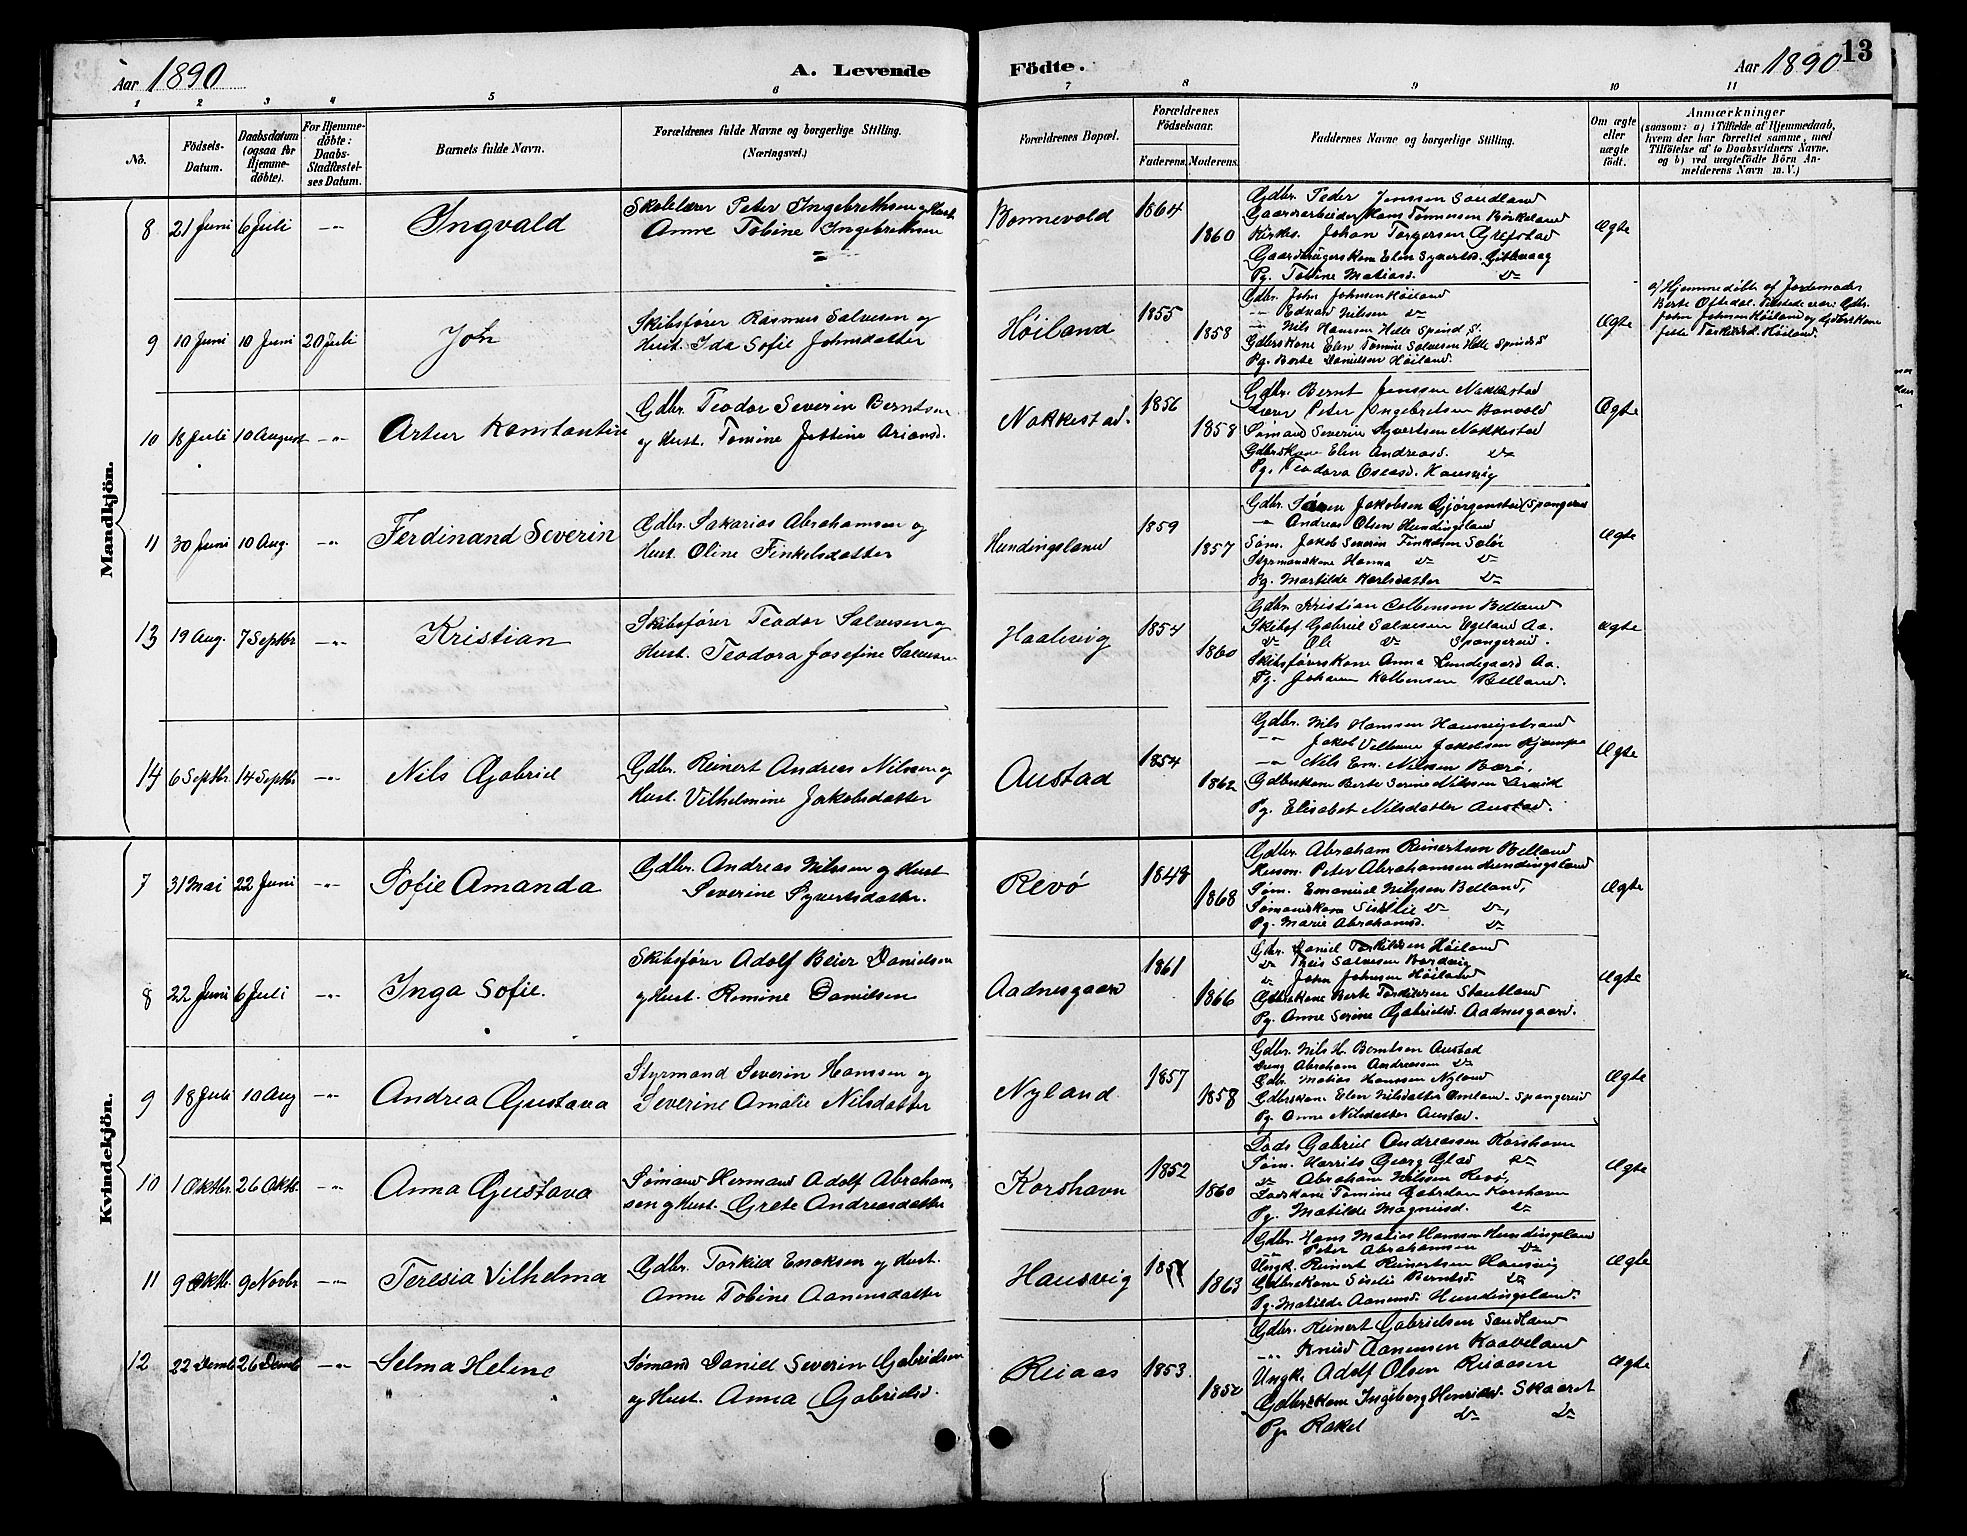 Aar 1890
A. Levende
Födte.
Aar 1890
13
1 2 3 4 5 6 7 8 9 10 11
No.
Födsels-Datum.
Daabsdatum (ogsaa for Hjemme-döbte).
For Hjemme-döbte: Daabs-Stadfæstel-ses Datum.
Barnets fulde Navn.
Forældrenes fulde Navne og borgerlige Stilling. (Næringsvei.)
Forældrenes Bopæl.
Forældrenes Födselsaar.
Faderens. Moderens.
Faddernes Navne og borgerlige Stilling.
Om ægte eller uægte födt.
Anmærkninger
(saasom: a) i Tilfælde af Hjemmedaab,
hvem der har forrettet samme, med
Tilföielse af to Daabsvidners Navne,
og b) ved uægtefödte Börn An-
melderens Navn m. V.)
Mandkjön.
8 21 Juni 6 Juli -"- Ingvald
Skolelærer Peter Ingebrethsen og Hust.
Anne Tobine Ingebrethsen
Bonnevold 1864 1860
Gdbr. Peder Jenssen Sandland
Gaardarbeider Hans Tønnesen Birkeland
Kirkes. Johan Torgersen Grefstad
Pg. Tobine Matiasd.
Ægte
9 10 Juni 10 Juni 20 Juli John
Skibsfører Rasmus Salvesen og
Hust. Ida Sofie Johnsdatter
Høiland 1855 1858
Gdbr. John Johnsen Høiland
-"- Edvard Nilsen do
-"- Nils Hansen Helle Spind S.
Gdbrskone Elen Tomine Salvesen Helle Spind S
Pg. Berte Danielsen Høiland.
Ægte
a/ Hjemmedøbt af Jordemoder
Berte Oftedal. Tilstede var: Gdbr.
John Johnsen Høiland og Gdbrskone
10 18 Juli 10 August -"- Artur Konstantin
Gdbr. Teodor Severin Berntsen
og Hust. Tomine Jettine Ariansd.
Nakkestad. 1856 1858
Gdbr. Bernt Jenssen Nakkestad
Lærer Peter Ingebretsen Bonvold
Sømand Severin Syvertsen Nakkestad
Gdbrskone Elen Andreasd. do
Pg. Teodora Oseasd. Hausvig
Ægte
11 30 Juni 10 Aug. -"- Ferdinand Severin
Gdbr. Sakarias Abrahamsen og
Hust. Oline Finkelsdatter
Hundingsland 1859 1857
-"- Andreas Olsen Hundingsland
Søm. Jakob Severin Finkelsen Salør
Styrmandskone Hanna do do
Pg. Martilde Karlsdatter do
Ægte
13 19 Aug. 7 Septbr -"- Kristian
Skibsfører Teodor Salvesen og
Hust. Teodora Josefine Salvesen
Haalevig 1854 1860
Gdbr. Kristian Colbensen Belland
Skibsf. Gabriel Salvesen Egeland Aa.
do Ole do Spangereid.
Skibsførerskone Anna Lundegaard Aa.
Pg. Johanne Kolbensen Belland.
ægte
14 6 Septbr. 14 Septbr -"- Nils Gabriel
Gdbr. Reinert Andreas Nilssen og
Hust. Vilhelmine Jakobsdatter
Austad 1854 1862
Gdbr. Nils Hanssen Hausvigstrand
-"- Jakob Jakobsen
-"- Nils Em. Nilssen Bærø.
Gdbrskone Berte Serine Nilssen
Pg. Elisabet Nilsdatter Austad.
Ægte
Kvindekjön.
7 31 Mai 22 Juni -"- Sofie Amanda
Gdbr. Andreas Nilssen og Hust
Severine Syvertsdatter.
Revø 1848 1868
Gdbr. Abraham Reinertsen Belland
Husm. Peter Abrahamsen Hundingsland
Søm. Emanuel Nilssen Belland,
Sømandskone Siselie do do,
Pg. Marie Abrahamsd. do
Ægte
8 22 Juni 6 Juli -"- Inga Sofie.
Skibsfører Adolf Beier Danielsen
og Hust. Romine Danielsen
Aadnesgaard 1861 1866
Gdbr. Daniel Torkildsen Høiland
do Salvesen
do John Johnsen Høiland
Gdbrskone Berte Torkildsen Stautland
Pg. Anne Serine Gabrielsd. Aadnesgaard.
Ægte
9 18 Juli 10 Aug -"- Andrea Gustava
Styrmand Severin Hanssen og
Severine Amalie Nilsdatter
Nyland 1857 1858
Gdbr. Nils H. Berntsen Austad
Ung Abraham Andreassen do
Gdbr. Matias Hanssen Nyland
Gdbrskone Elen Nilsdatter Spangereid
Pg. Anne Nilsdatter Austad.
Ægte
10 1 Oktbr. 26 Oktbr. -"- Anna Gustava
Sømand Hermand Adolf Abraham-
sen og Hust. Grete Andreasdatter
Korshavn 1852 1860
Lods Gabriel Andreassen Korshavn
Søm. Georg Glad do
do Abraham Nilssen Revø,
Lodskone Tomine Korshavn
Pg. Matilde Magnusd. do
Ægte
11 9 Oktbr. 9 Novbr -"- Teresia Vilhelma
Gdbr. Torkild Enoksen og Hust.
Anne Tobine Aanensdatter
Hausvig 1863
Gdbr. Hans Matias Hanssen Hundingsland
-"- Peter Abrahamsen do
Ungk. Reinert Reinertsen Hausvig
Gdbrskone Siselie Berntsd. do
Pg. Matilde Aanensd. Hundingsland.
Ægte
12 22 Decmb 26 Decmb -"- Selma Helene
Sømand Daniel Severin Gabrielsen
og Hust. Anna Gabrielsd.
Reiaas 1853 1852
Gdbr. Reinert Gabrielsen Sandland
-"- Knud Aanensen Kaaveland
Ungk. Adolf Olsen Reiaasen
Gdbrskone Ingeborg Henriksd. Skaaret
Pg. Rakel do do
Ægte